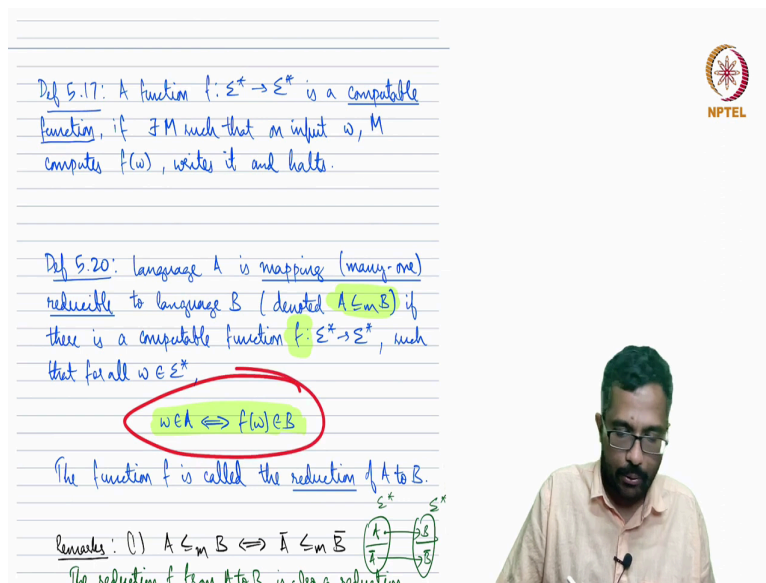 Def 5.17: A function f: Σ* → Σ* is a computable
function, if ∃ M such that on input w, M
computes f(w), writes it and halts.
NPTEL
Def 5.20: Language A is mapping (many-one)
reducible to language B (denoted A ≤m B) if
there is a computable function f: Σ* → Σ*, such
that for all w ∈ Σ*,
w ∈ A ⟺ f(w) ∈ B
The function f is called the reduction of A to B.
Σ* Σ*
Remarks: (1) A ≤m B ⟺ Ā ≤m B̄
A B
Ā B̄
The reduction f from A to B is also a reduction